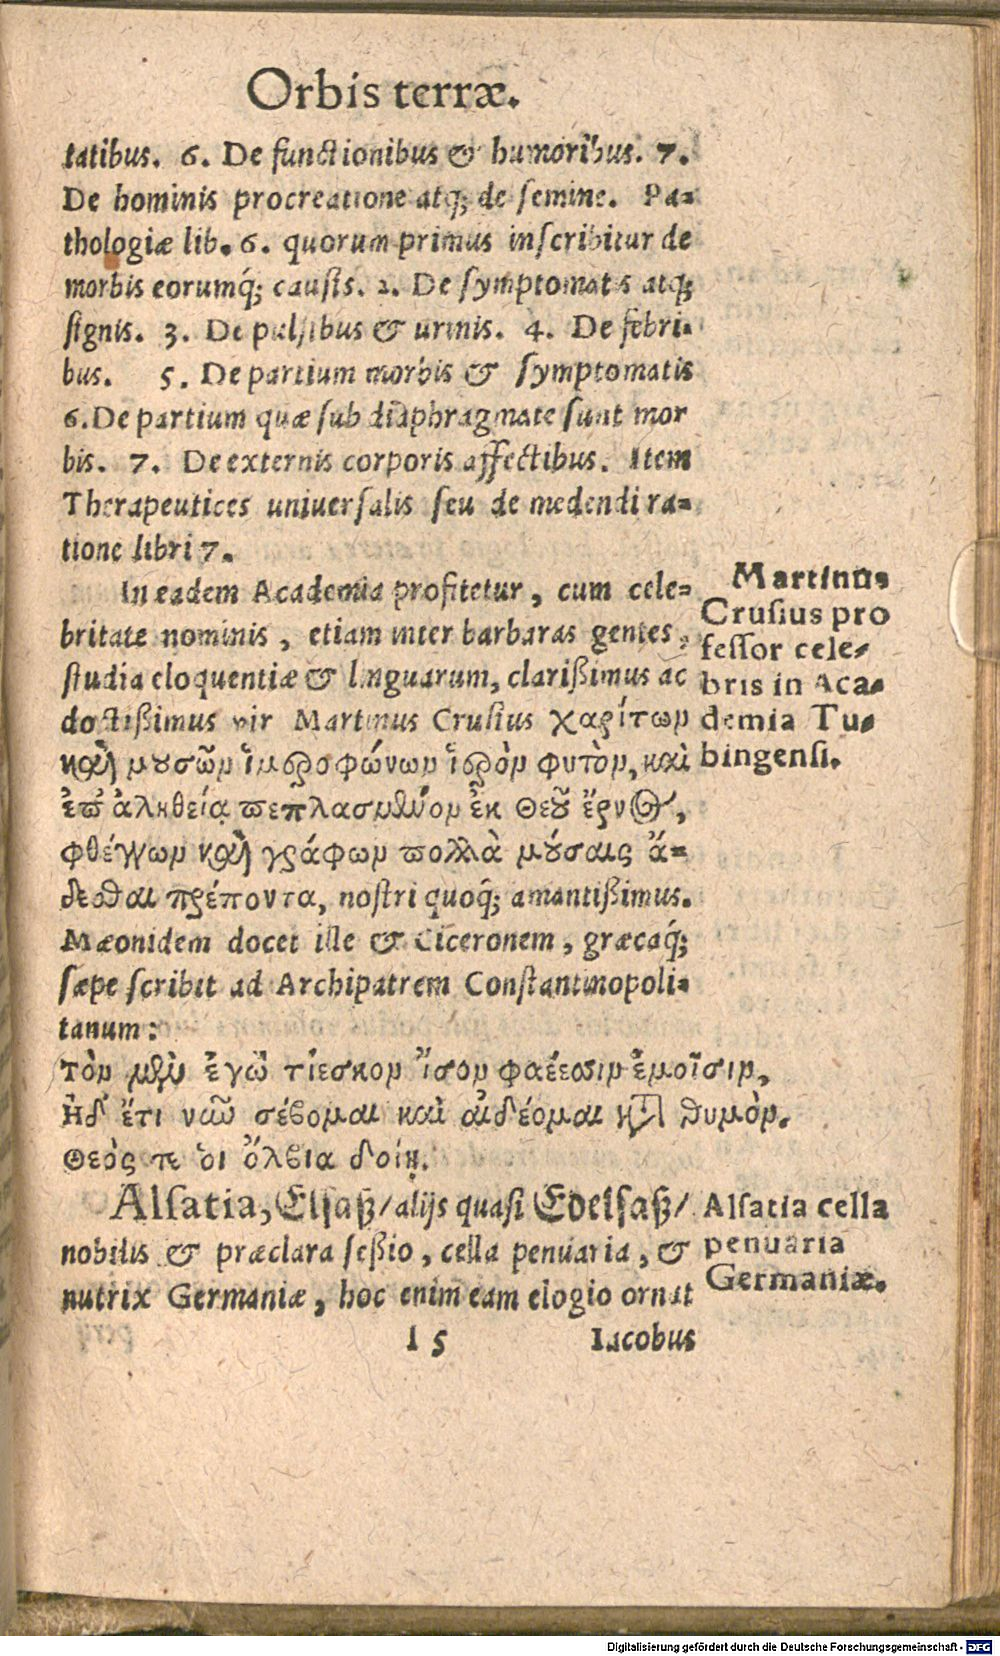 Orbis terræ.
tatibus. 6. De functionibus & humoribus. 7.
De hominis procreatione atq; de semine. Pa-
thologiæ lib. 6. quorum primus inscribitur de
morbis eorumq́; causis. 2. De symptomatis atq;
signis. 3. De pulsibus & urinis. 4. De febri-
bus. 5. De partium morbis & symptomatis
6. De partium quæ sub diaphragmate sunt mor
bis. 7. De externis corporis affectibus. Item
Therapeutices uniuersalis seu de medendi ra-
tione libri 7.
In eadem Academia profitetur, cum cele-
britate nominis, etiam inter barbaras gentes,
studia eloquentiæ & linguarum, clarißimus ac
doctißimus vir Martinus Crusius χαρίτων
καὶ μουσῶν ἱμεροφώνων ἱερὸν φυτὸν, καὶ
ἐπ' ἀληθείᾳ πεπλασμένον ἐκ Θεοῦ ἔρνος,
φθέγγων καὶ γράφων πολλὰ μούσαις ἅ-
δεσθαι πρέποντα, nostri quoq́; amantißimus.
Mæonidem docet ille & Ciceronem, græcaq́;
sæpe scribit ad Archipatrem Constantinopoli-
tanum:
τὸν μὲν ἐγὼ τίεσκον ἴσον φαέεσσιν ἐμοῖσιν,
Ηδ' ἔτι νῶϊ σέβομαι καὶ αἰδέομαι κατὰ θυμόν.
Θεός τέ οἱ ὄλβια δοίη.
Martinus
Crusius pro
fessor cele-
bris in Aca-
demia Tu-
bingensi.
Alsatia, Elsaß/ alijs quasi Edelsaß/
nobilis & præclara seßio, cella penuaria, &
nutrix Germaniæ, hoc enim eam elogio ornat
Alsatia cella
penuaria
Germaniæ.
I 5 Iacobus
Digitalisierung gefördert durch die Deutsche Forschungsgemeinschaft - DFG